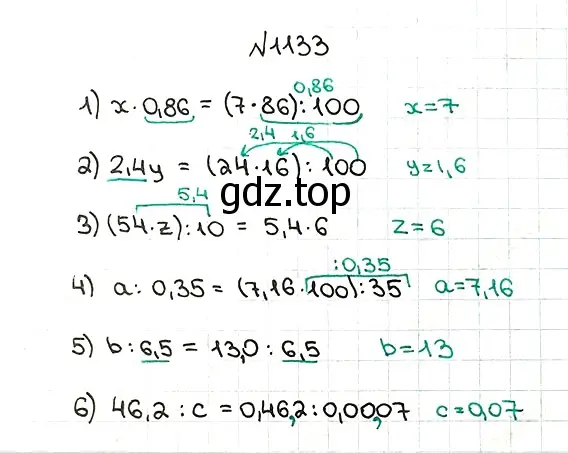 №1133
0,86
1) x · 0,86 = (7 · 86) : 100 x = 7
2,4 1,6
2) 2,4y = (24 · 16) : 100 y = 1,6
gdz.top
5,4
3) (54 · z) : 10 = 5,4 · 6 z = 6
: 0,35
4) a : 0,35 = (7,16 · 100) : 35 a = 7,16
5) b : 6,5 = 13,0 : 6,5 b = 13
6) 46,2 : c = 0,46,2 : 0,00,07 c = 0,07